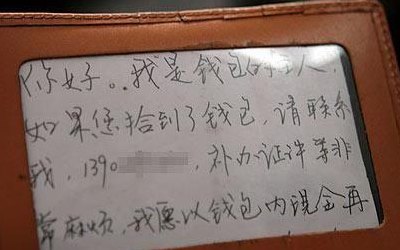 你好。.我是钱包的主人,
如果您拾到了钱包,请联系
我,1390 ,补办证件等非
常麻烦,我愿以钱包内现金再